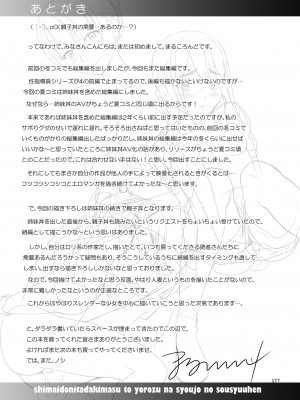 あとがき
（´-`）。oO（親子丼の需要…あるのか…？）
ってなわけで、みなさんこんにちは、または初めまして、まるころんどです。
前回の冬コミでも総集編を出しましたが、今回もまた総集編です。
性指導員シリーズが4の前編で止まってるので、後編も描かないといけないのですが…
今回の夏コミでは姉妹丼を含めた総集編にしました。
なぜなら…姉妹丼のAVがちょうど夏コミと同じ頃に出るからです！
本来であれば姉妹丼を含めた総集編は2年くらい前に出す予定だったのですが、私の
サボりグゼのせいで遅れに遅れ、そろそろ出さねばと思ってはいたものの、前回の冬コミで
いくのがかりの総集編出したばっかりだし、姉妹丼の総集編は今年の冬くらいに出せば
いいかな～と思っていたところに姉妹丼AV化の話があり、リリースがちょうど夏コミ頃
とのことだったので、これは合わせない手はない！と思い、今回出すことにしました。
それにしてもまさか自分の作品が他人の手によって映像化されるときがくるとは…
コツコツシコシコとエロマンガを描き続けてよかったな～と思います。
で、今回の描き下ろしは姉妹丼の続きで親子丼となります。
姉妹丼を出した直後から、親子丼も読みたいというリクエストをちょいちょい受けていたので、
続編として描こうかな～とは思っていました。
しかし、自分はロリ系の作家だし、描いたとて、いつも買ってくださる読者さんたちに
需要あるんだろうかって疑問もあり、そうこうしているうちに続編を出すタイミングも逃して
しまい、出すなら描き下ろししかないなと思っておりました。
なので、今回描けてよかったと思う反面、やはり人妻というものを描いたことがないので、
非常に難しかったなというのが正直なところです。
これからはやはりスレンダーな少女を中心に描いていこうと思った次第であります…。
と、ダラダラ書いていたらスペースが埋まってきたのでこの辺で。
この本を買ってくれた皆さまありがとうございました。
よければまた次の本も買ってやってくださいませ。
では、また、ノシ
177
shimaidonitadakimasu to yorozu na syoujo no sousyuuhen